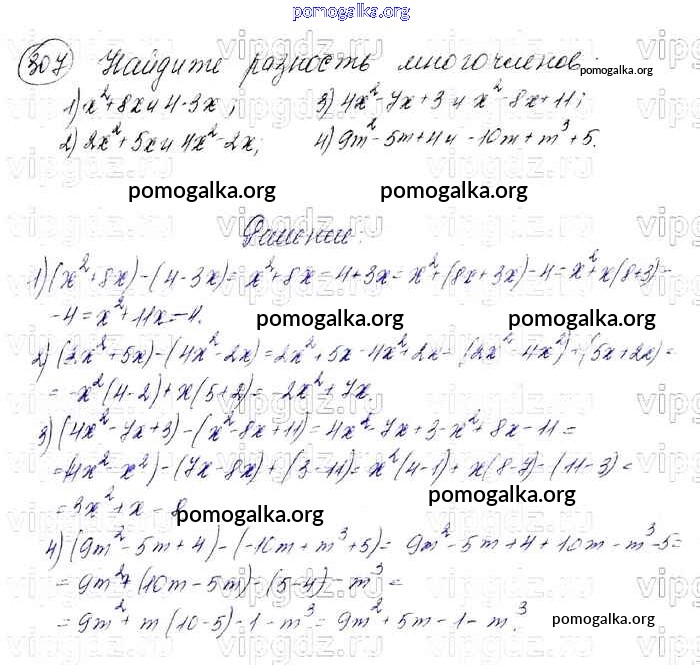 pomogalka.org
307 Найдите разность многочленов: pomogalka.org
1) x²+8x и 4-3x; 3) 4x²-7x+3 и x²-8x+11;
2) 2x²+5x и 4x²-2x; 4) 9m²-5m+4 и -10m+m³+5.
pomogalka.org pomogalka.org
Решение:
1) (x²+8x)-(4-3x)= x²+8x=4+3x= x²+(8x+3x)-4= x²+x(8+3)-
-4= x²+11x-4.
pomogalka.org pomogalka.org
2) (2x²+5x)-(4x²-2x)=2x²+5x-4x²+2x= (2x²-4x²)+(5x+2x)=
= -x²(4-2)+x(5+2)= -2x²+7x.
3) (4x²-7x+3)-(x²-8x+11)= 4x²-7x+3-x²+8x-11=
=(4x²-x²)-(7x-8x)+(3-11)= x²(4-1)+x(8-7)-(11-3)=
=3x²+x-8
pomogalka.org pomogalka.org
4) (9m²-5m+4)-(-10m+m³+5)= 9m²-5m+4+10m-m³-5=
= 9m²+(10m-5m)-(5-4)-m³=
= 9m²+m(10-5)-1-m³= 9m²+5m-1-m³. pomogalka.org
vipgdz.ru